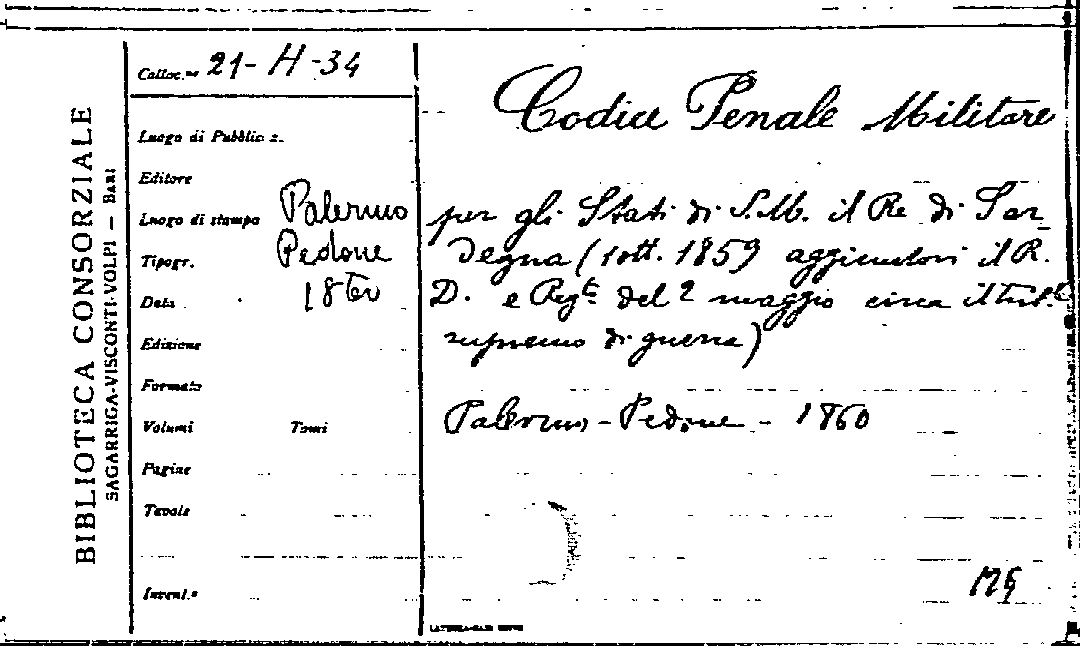 BIBLIOTECA CONSORZIALE
SAGARRIGA-VISCONTI-VOLPI — BARI
Colloc.ne 21-H-34
Luogo di Pubblicaz.
Editore
Luogo di stampa Palermo
Tipogr. Pedone
Data 1860
Edizione
Formato
Volumi Tomi
Pagine
Tavole
Invent.o
Codice Penale Militare
per gli Stati di S.M. il Re di Sar-
degna (1 ott. 1859 aggiuntovi il R.
D. e Reg.to del 2 maggio circa il trib.le
supremo di guerra)
Palermo - Pedone - 1860